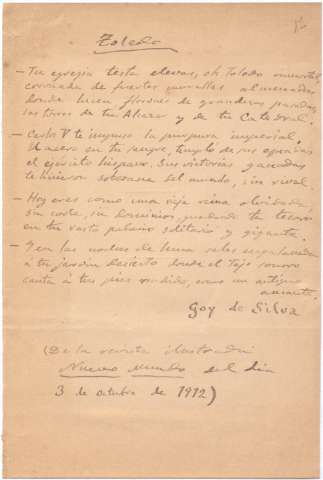 Toledo
— Tu egregia testa elevas, oh Toledo inmortal
coronada de fuertes murallas almenadas
donde lucen florones de grandezas pasadas
las torres de tu Alcázar y de tu Catedral.
— Carlos V te impuso la púrpura imperial.
El acero en tu sangre, templó de sus espadas
el ejército hispano. Sus victorias ganadas
te hicieron soberana del mundo, sin rival.
— Hoy eres como una vieja reina olvidada
Sin corte, sin dominios, guardando tu tesoro
en tu vasto palacio solitario y gigante.
— Y en las noches de luna sales engalanada
á tu jardín desierto donde el Tajo sonoro
canta á tus pies rendido, como un antiguo
amante.
Goy de Silva
(De la revista ilustrada
Nuevo Mundo del día
3 de octubre de 1912)